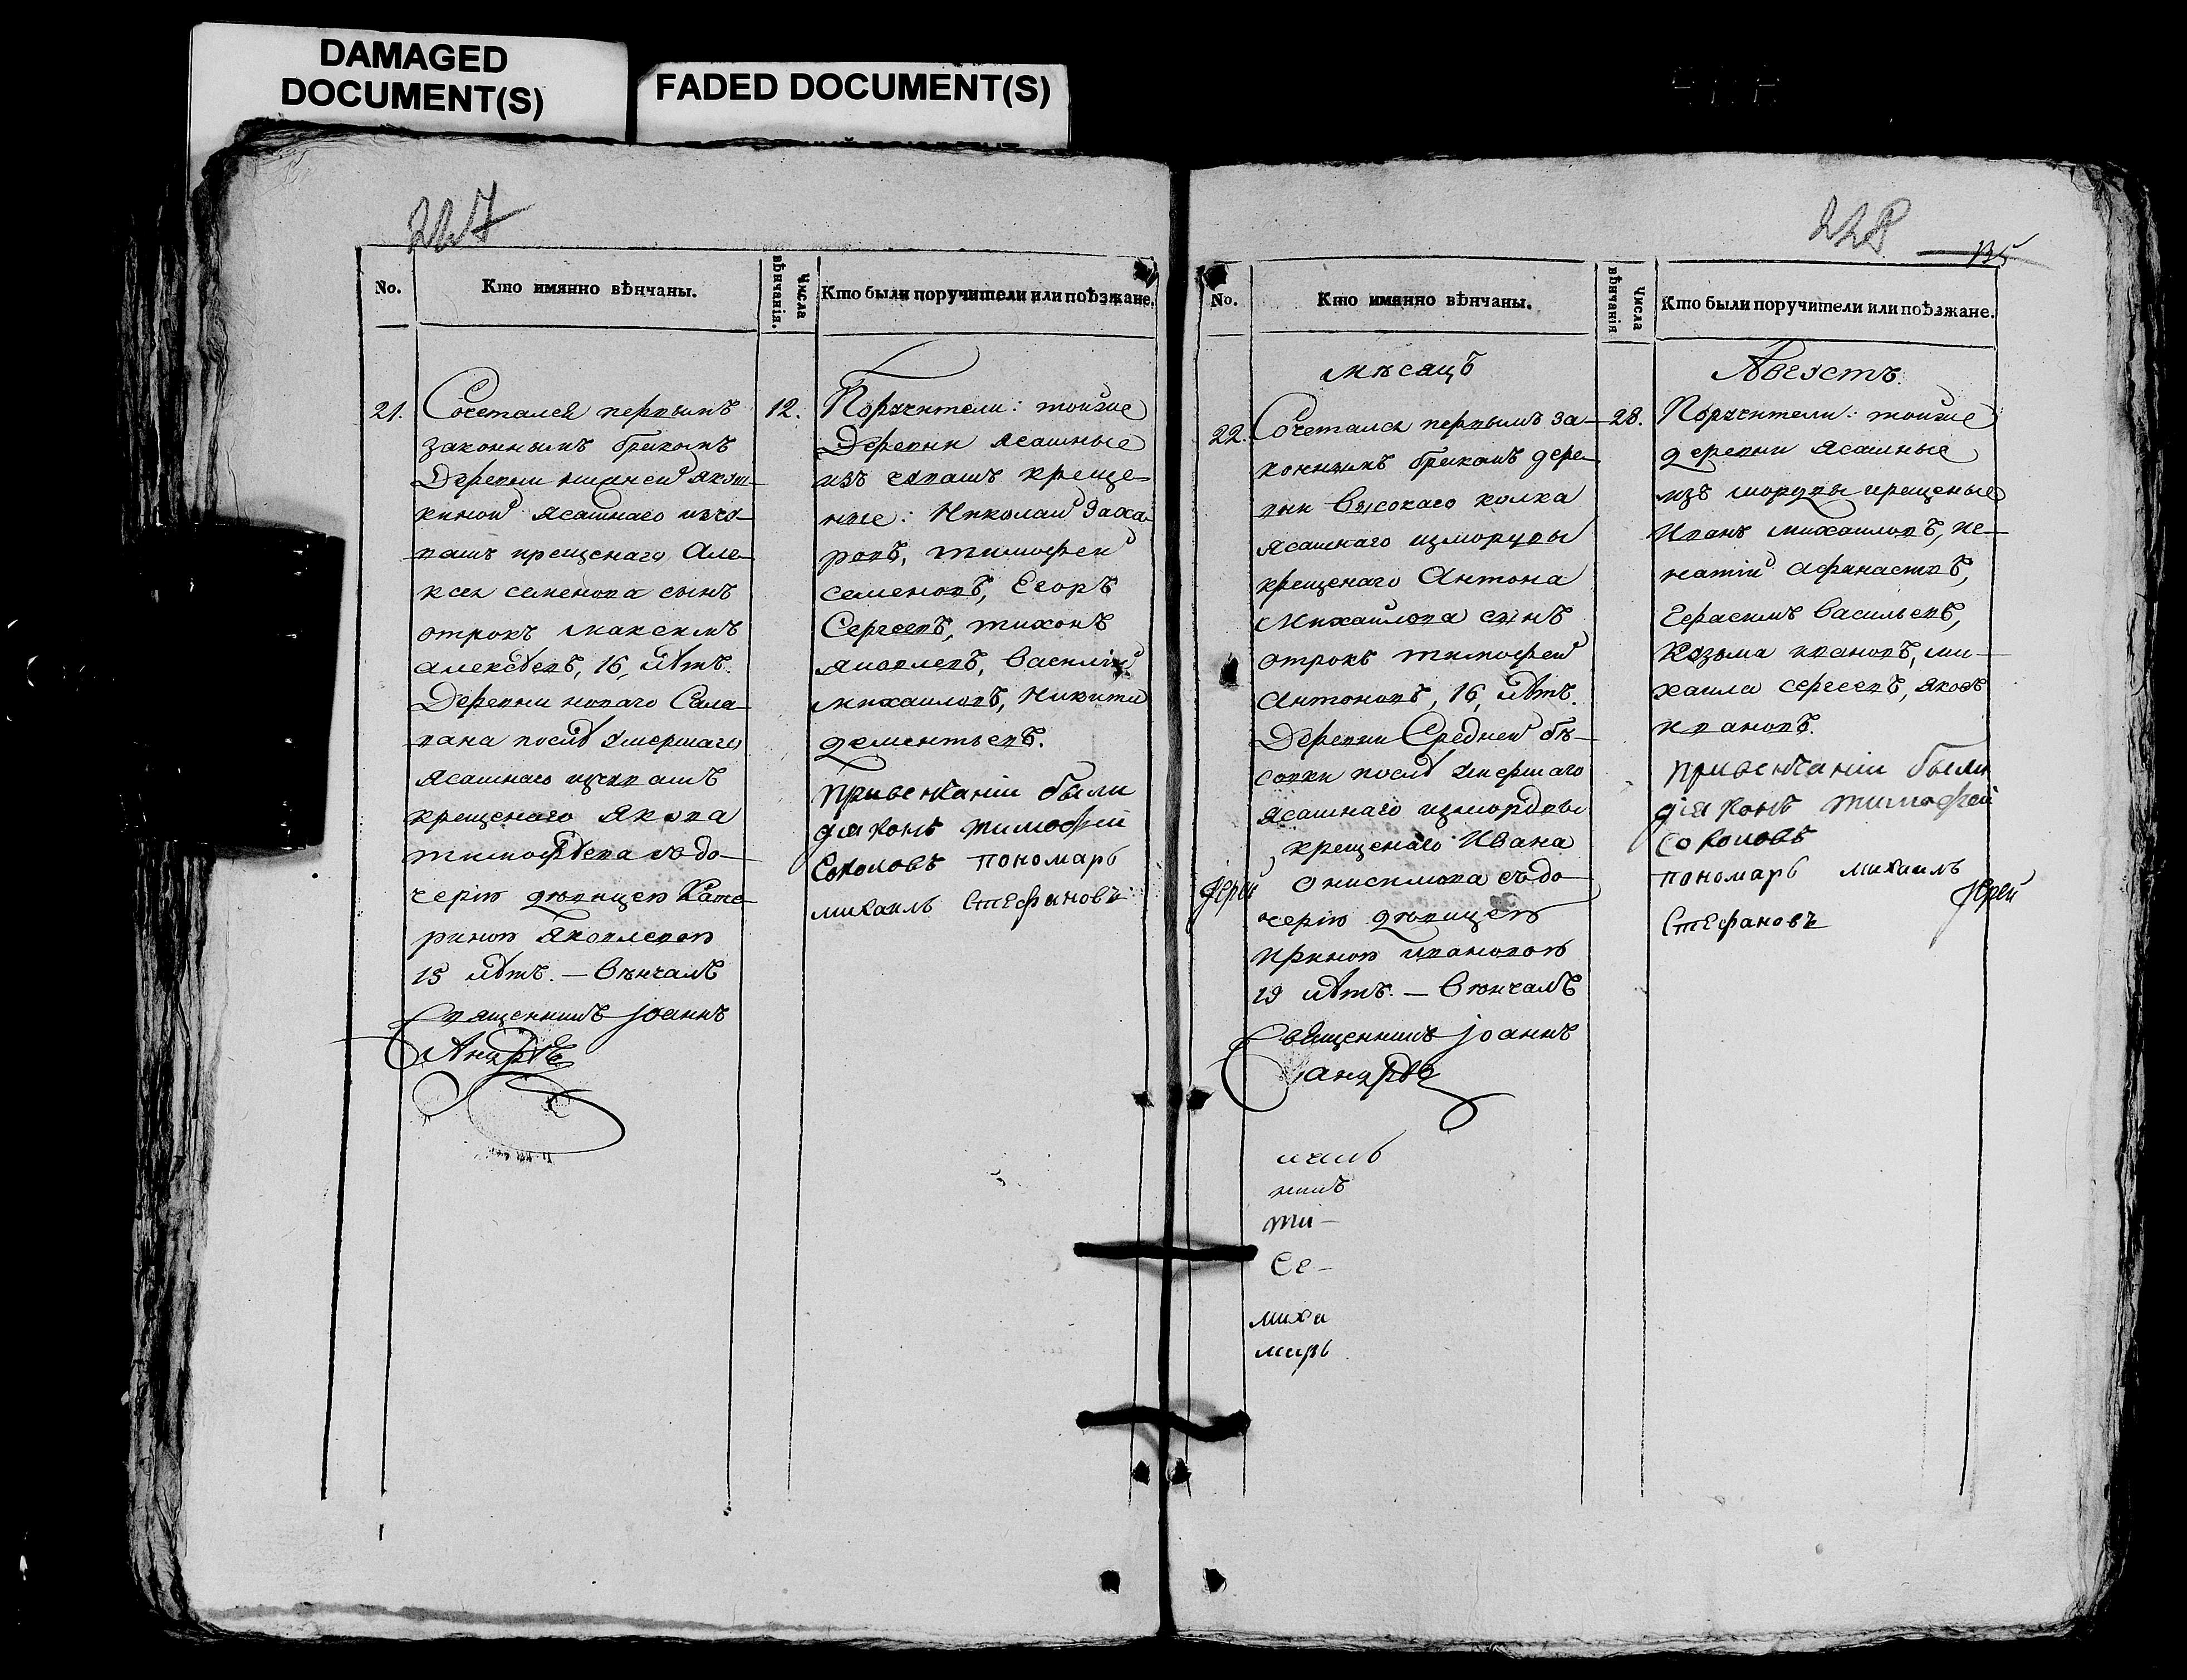 DAMAGED
DOCUMENT(S)
FADED DOCUMENT(S)
227
No.
Кто имянно вѣнчаны.
Числа вѣнчанія.
Кто были поручители или поѣзжане.
21.
Сочетался первымъ
законнымъ бракомъ
Деревни нижней якуш-
киной ясашнаго изчу-
вашъ крещенаго Але-
ксея семенова сынъ
отрокъ максимъ
алексѣевъ, 16, лѣтъ.
Деревни новаго Сала-
вана послѣ умершаго
Ясашнаго изчувашъ
крещенаго Якова
тимофѣева съ до-
черію дѣвицею Кате-
риною Яковлевою
15 лѣтъ. — Вѣнчалъ
Священникъ Iоаннъ
12.
Поручители: тойже
Деревни ясашные
изъ чувашъ креще-
ные: Николай Заха-
ровъ, тимофей
семеновъ, Егоръ
Сергеевъ, тихонъ
яковлевъ, Василій
михайловъ, Никита
дементьевъ.
привенчаніи были
діаконъ тимофей
Соколовъ пономарь
михаилъ Стефановъ
228
135
No.
Кто имянно вѣнчаны.
Числа вѣнчанія
Кто были поручители или поѣзжане.
мѣсяцъ
Августъ.
22.
Сочетался первымъ за-
коннымъ бракомъ дере-
вни Высокаго колка
ясашнаго измордвы
крещенаго Антона
Михайлова сынъ
отрокъ тимофей
Антоновъ, 16, лѣтъ.
Деревни Средней бѣ-
совки послѣ умершаго
ясашнаго измордвы
крещенаго Ивана
Онисимова съ до-
черію дѣвицею
Ириною ивановою
19 лѣтъ. — Вѣнчалъ
Священникъ Iоаннъ
28.
Поручители: тойже
деревни ясашные
изъ мордвы крещеные
Иванъ михайловъ, иг-
натій афанасьевъ,
Герасимъ Васильевъ,
Козьма ивановъ, ми-
хаила сергеевъ, яковъ
ивановъ.
привенчаніи были
діаконъ тимофей
соколовъ
пономарь михаилъ
Стефановъ
Iерей
Iерей
никъ
ти-
Се-
миха
марь